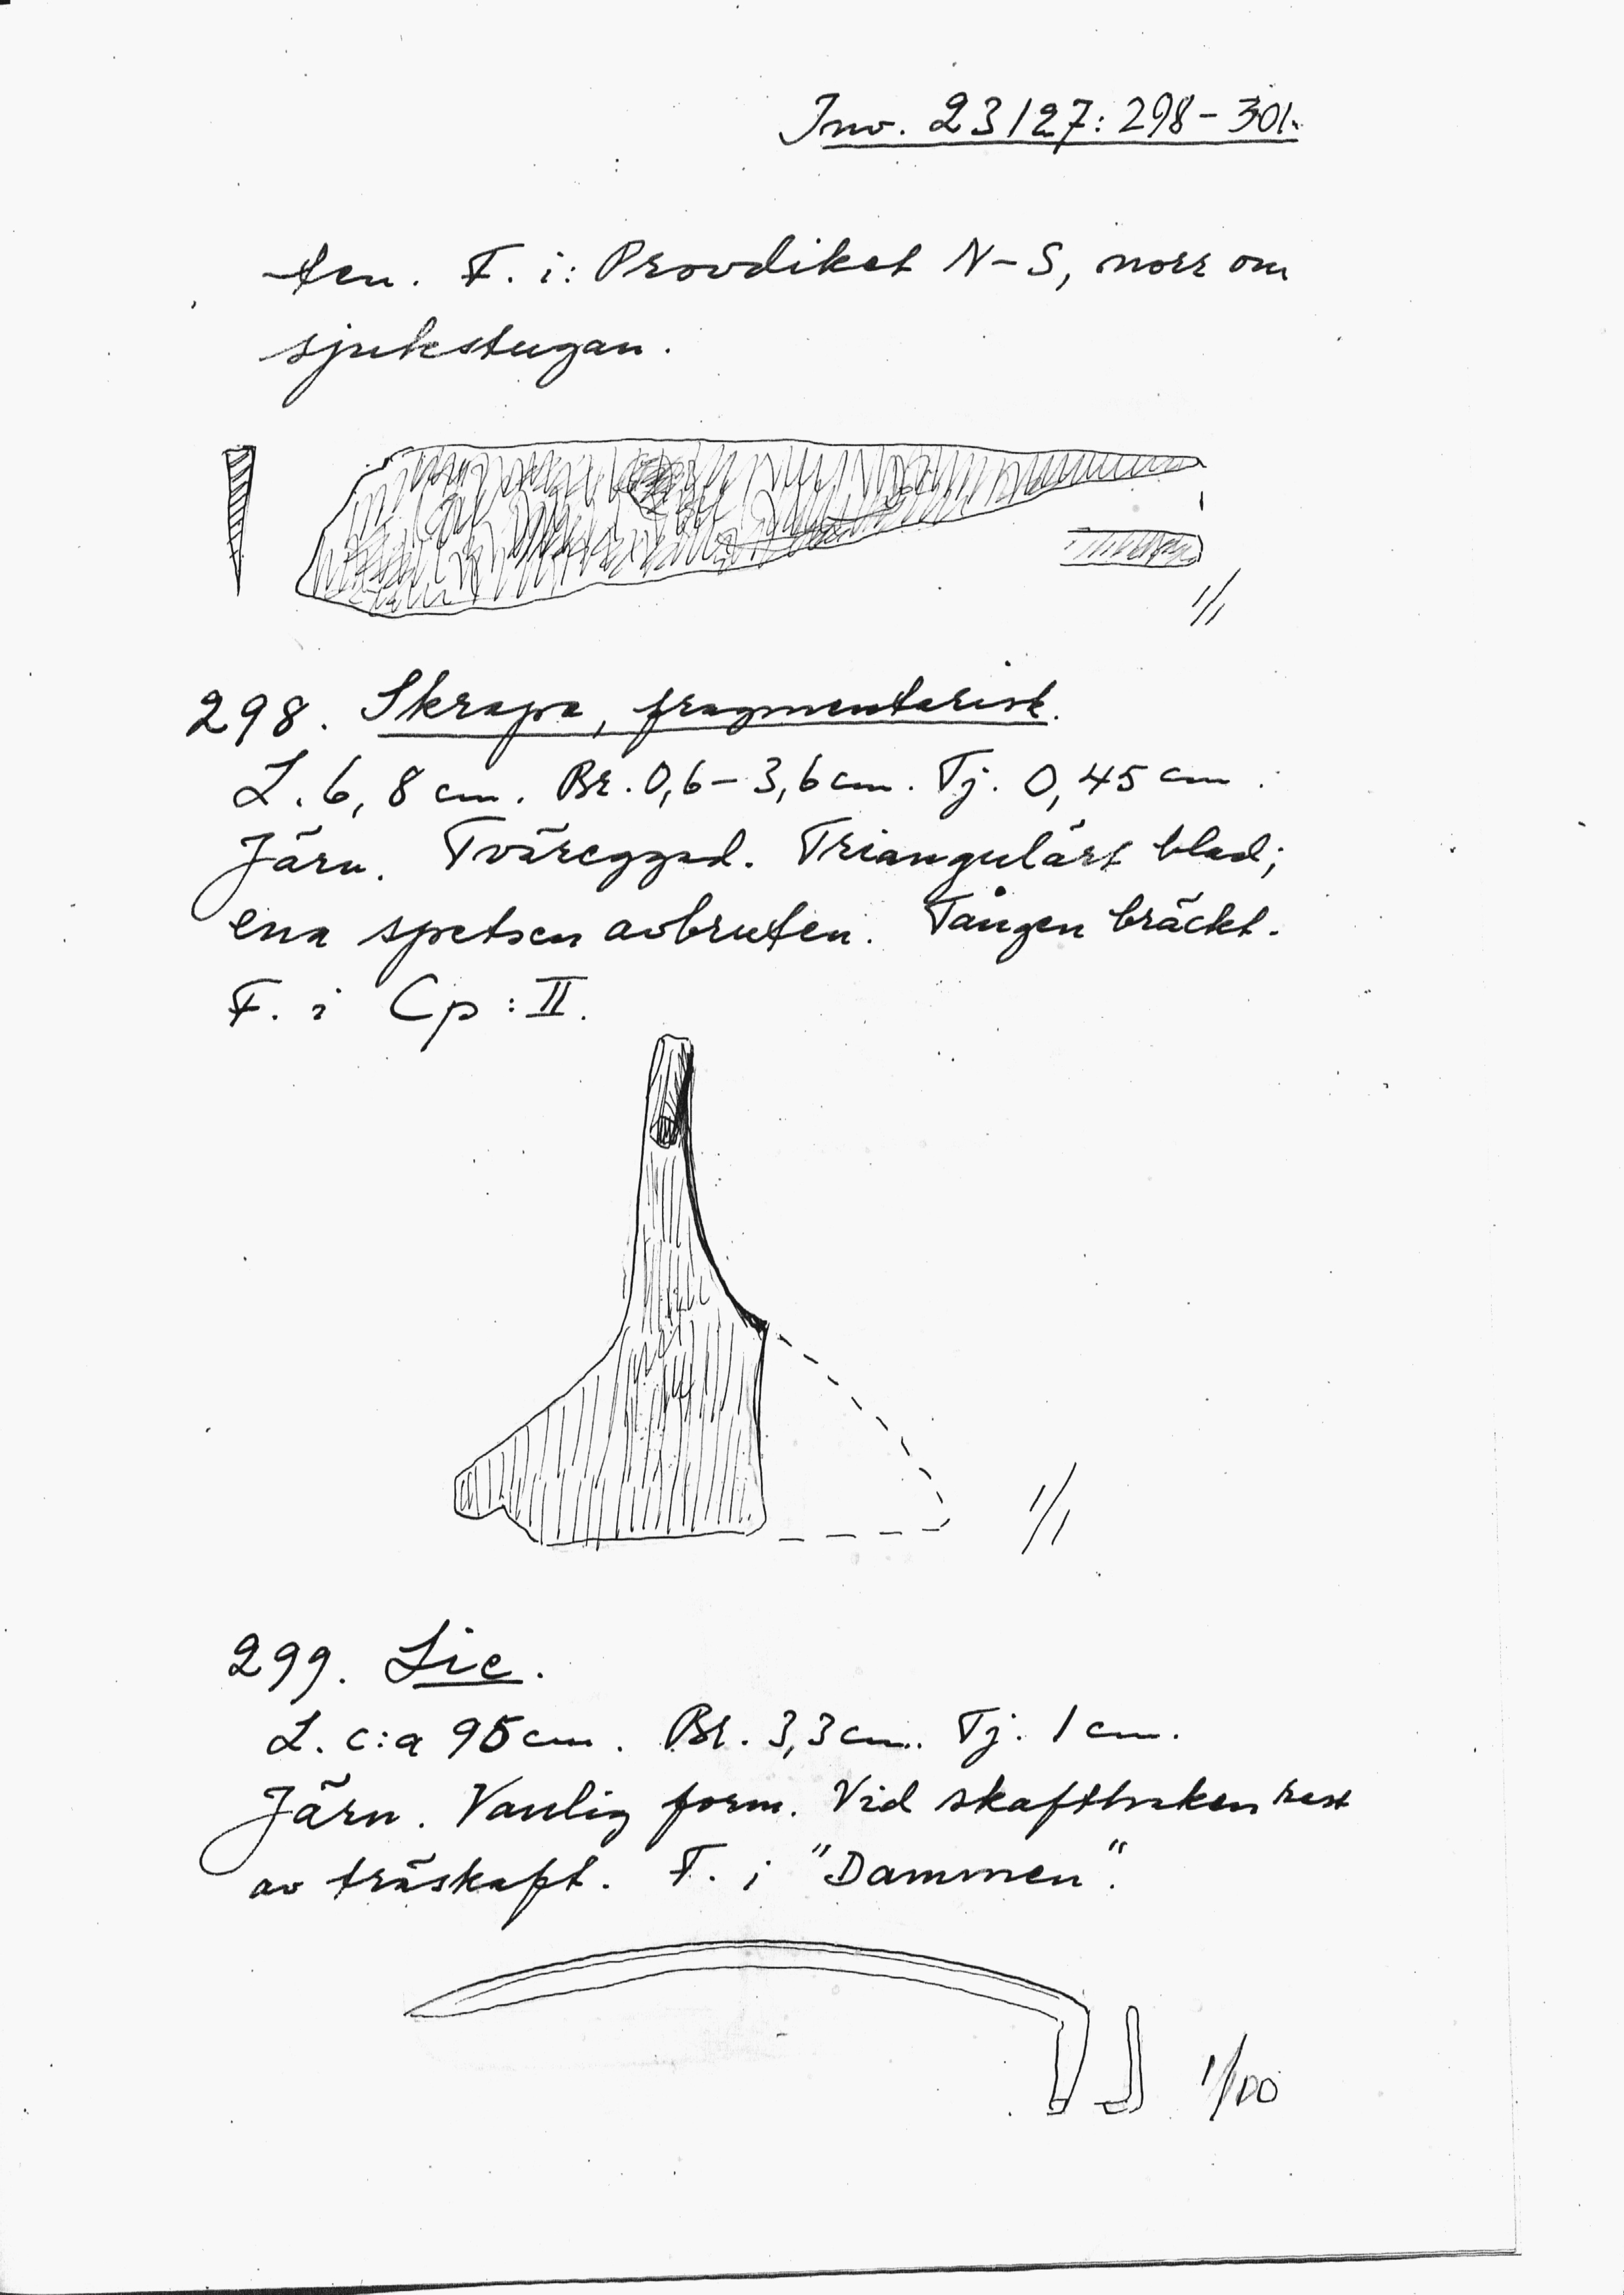 Inv. 23127: 298-301.
ten. F. i: Provdiket N-S, norr om
sjukstugan.
1/1
298. Skrapa, fragmentarisk.
L. 6,8 cm. Br. 0,6-3,6 cm. Tj. 0,45 cm.
Järn. Tväreggad. Triangulärt blad;
ena spetsen avbruten. Tången bräckt.
F. i Cp: II.
1/1
299. Lie.
L. c:a 95 cm. Br. 3,3 cm. Tj. 1 cm.
Järn. Vanlig form. Vid skafthaken rest
av träskaft. F. i "Dammen".
1/100